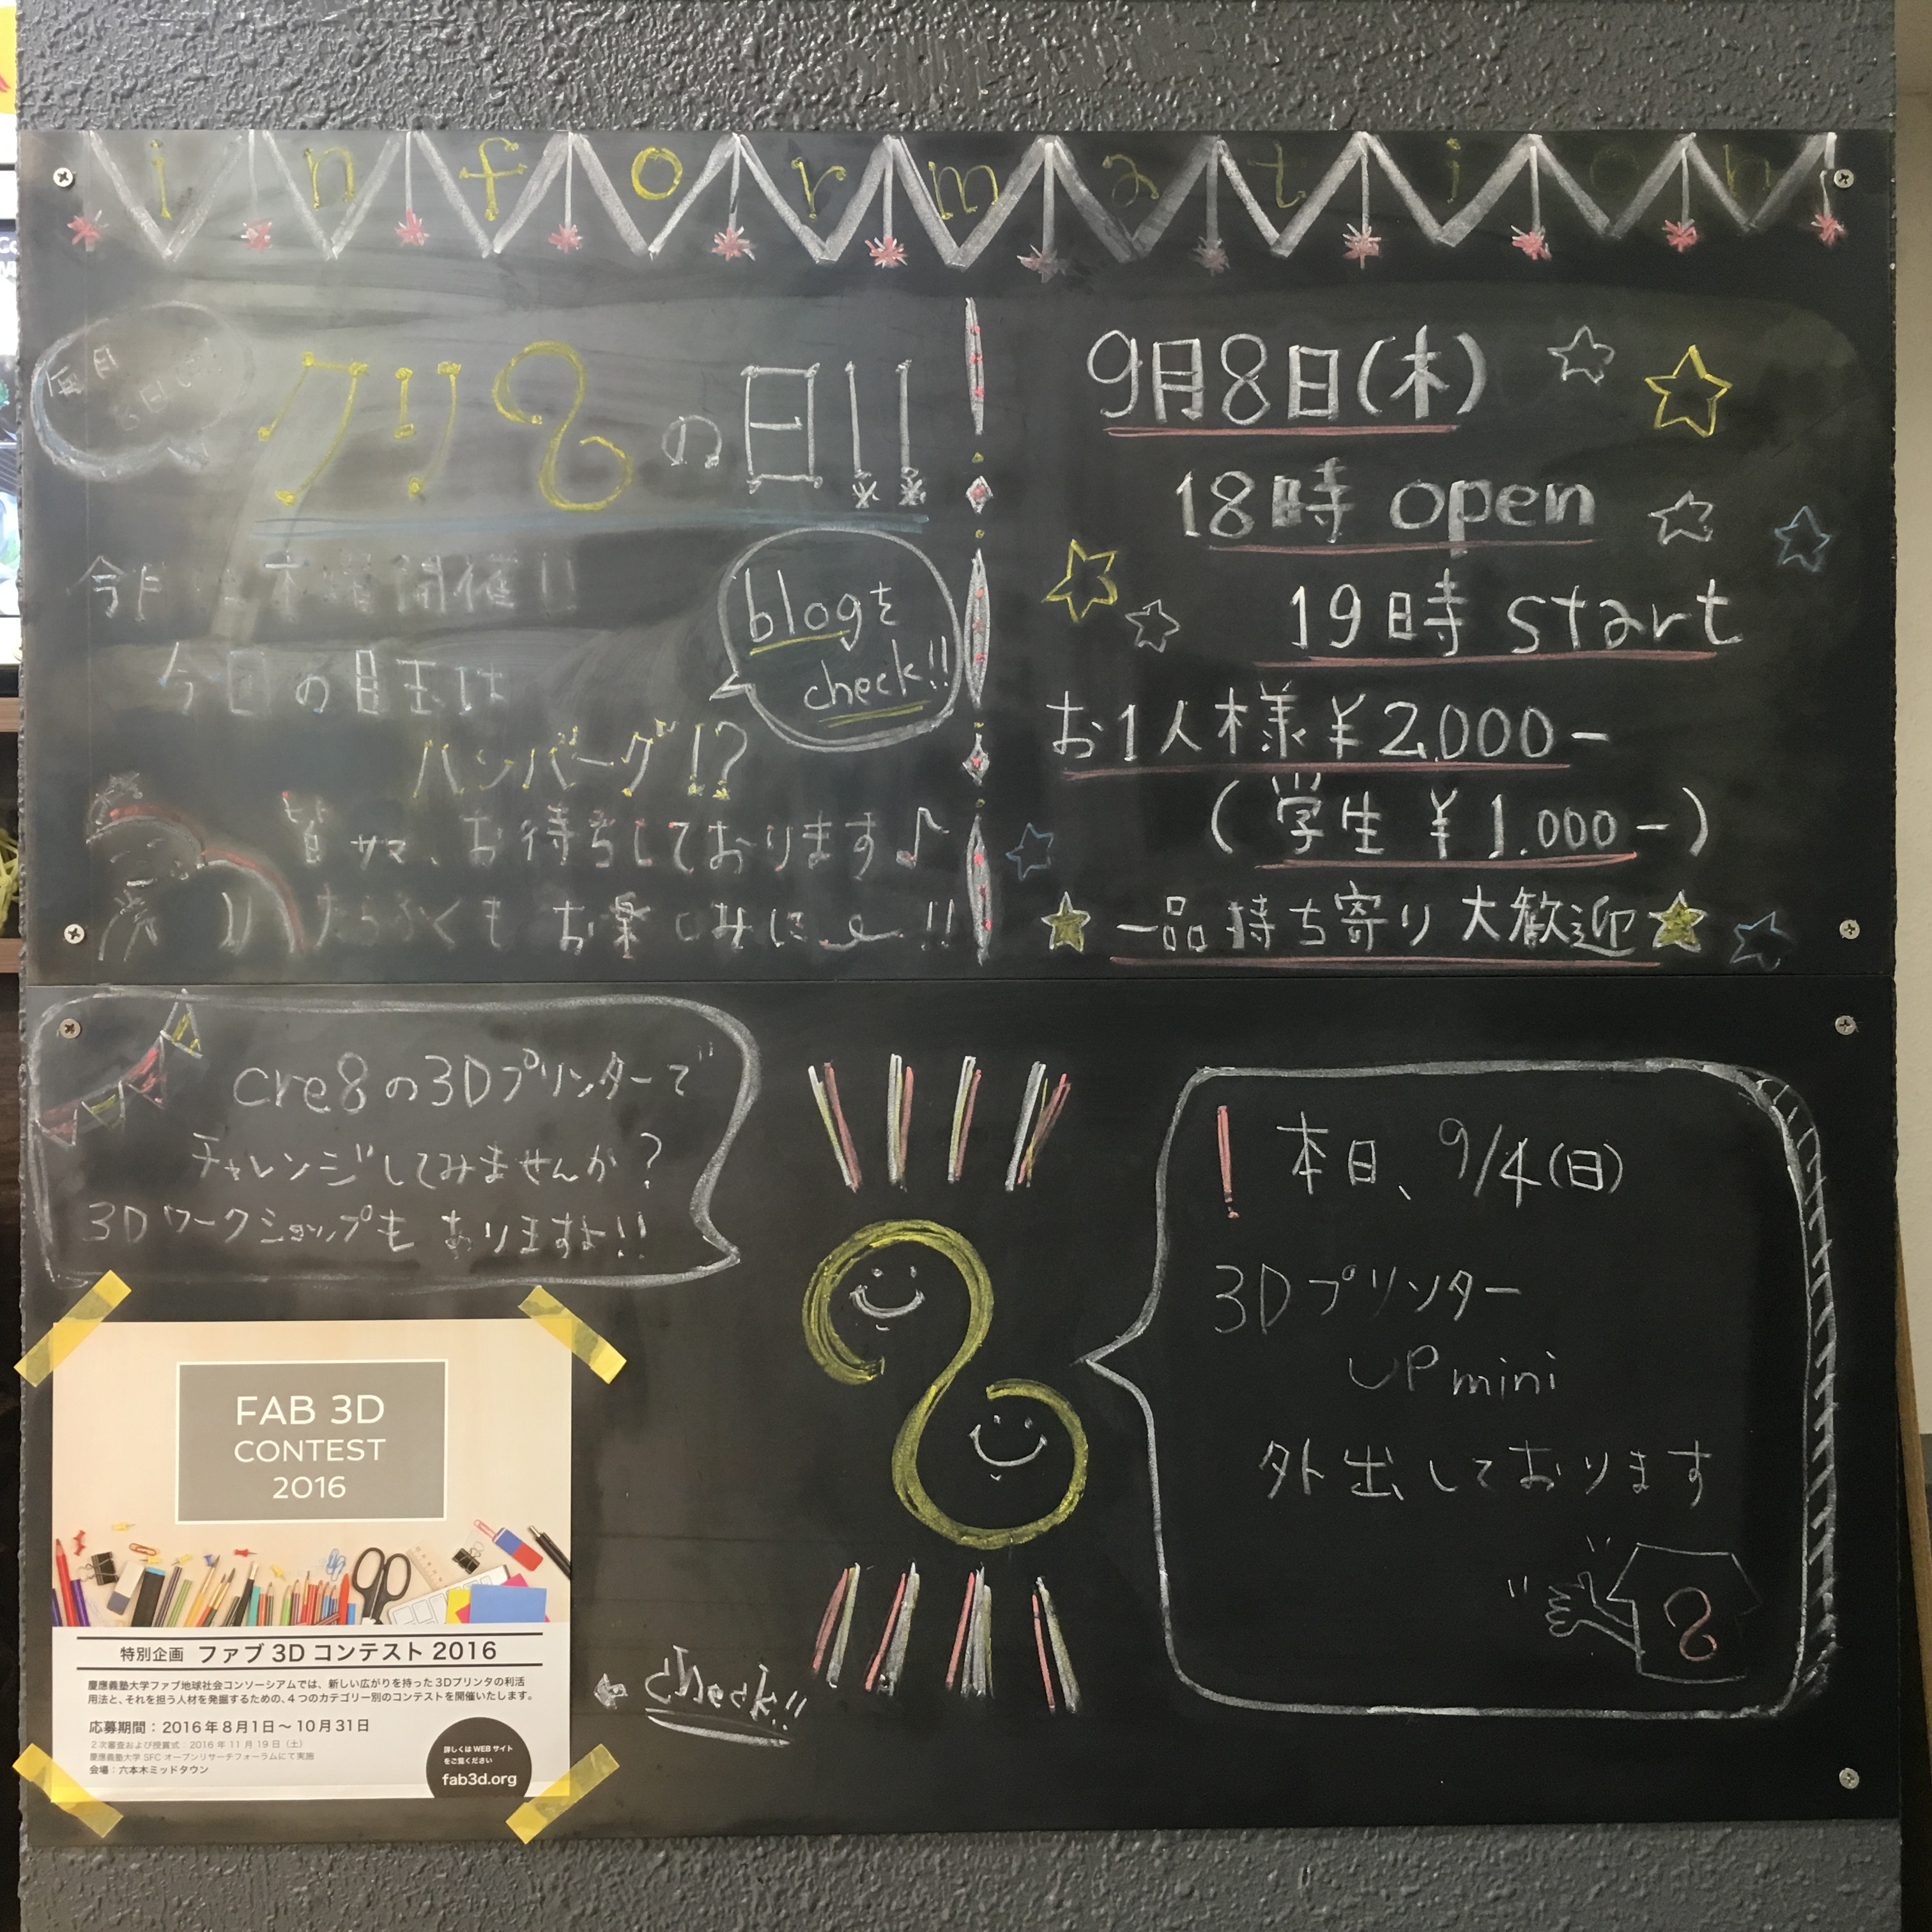 information
クリ8の日!!
今月 木曜開催!!
今回の目玉は
ハンバーグ!?
皆サマ、お待ちしております♪
たらふくも お楽しみに !!
blogを
check!!
9月8日(木)
18時 open
19時 start
お1人様 ¥2,000-
(学生 ¥1.000-)
★一品持ち寄り大歓迎★
cre8の3Dプリンターで
チャレンジしてみませんか?
3Dワークショップも ありますよ!!
! 本日、9/4(日)
3Dプリンター
UP mini
外出しております
8
FAB 3D
CONTEST
2016
特別企画 ファブ 3D コンテスト 2016
慶應義塾大学ファブ地球社会コンソーシアムでは、新しい広がりを持った3Dプリンタの利活
用法と、それを担う人材を発掘するための、4つのカテゴリー別のコンテストを開催いたします。
応募期間：2016年8月1日〜10月31日
2次審査および授賞式：2016 年 11 月 19 日（土）
慶應義塾大学 SFC オープンリサーチフォーラムにて実施
会場：六本木ミッドタウン
詳しくは WEB サイト
をご覧ください
fab3d.org
← check!!